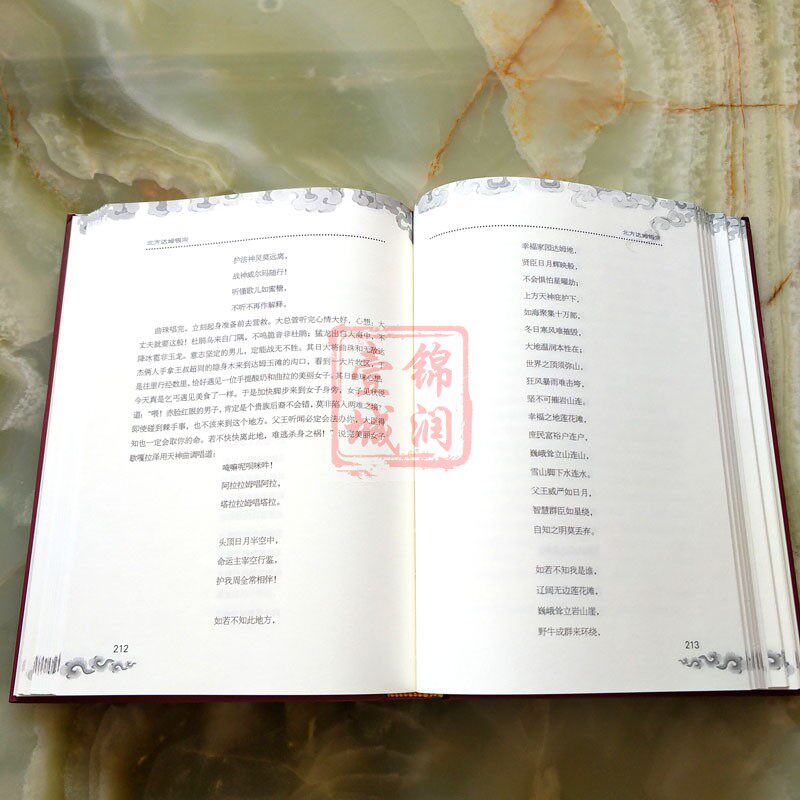 北方达姆银宗
护法神灵莫远离,
战神威尔玛随行!
听懂歌儿如蜜糖,
不听不再作解释。
曲珠唱完,立刻起身准备前去营救。大总管听完心情大好,心想:大
丈夫就要这般!杜鹃鸟来自门隅,不鸣脆音非杜鹃;猛龙出自大海中,不
降冰雹非玉龙。意志坚定的男儿,定能战无不胜。其日大将曲珠和无敌达
杰俩人手拿王叔超同的隐身木来到达姆玉滩的沟口,看到一大片牧区,于
是往里行经数里,恰好遇见一位手提酸奶和曲拉的美丽女子。其日曲珠心想,
今天真是乞丐遇见美食了一样。于是加快脚步来到女子身旁,女子见状便
道:“喂!赤脸红眼的男子,肯定是个贵族后裔不会错,莫非陷入两难之境!
即使碰到棘手事,也不该来到这个地方。父王听闻必定会法办你,大臣得
知也一定会取你的命。若不快快离此地,难逃杀身之祸!”说完美丽女子
歌嘎拉泽用天神曲调唱道:
唵嘛呢呗咪吽!
阿拉拉姆唱阿拉,
塔拉拉姆唱塔拉。
头顶日月半空中,
命运主宰空行鉴,
护我周全常相伴!
如若不知此地方,
212
幸福家园达姆地,
贤臣日月辉映般,
不会惧怕星曜劫;
上方天神庇护下,
如海聚集十万部,
冬日寒风难摧毁,
大地温润本性在;
世界之顶须弥山,
狂风暴雨难击垮,
坚不可摧岩山连。
幸福之地莲花滩,
庶民富裕户连户,
巍峨耸立山连山,
雪山脚下水连水。
父王威严如日月,
智慧群臣如星绕,
自知之明莫丢弃。
如若不知我是谁,
辽阔无边莲花滩,
巍峨耸立岩山崖,
野牛成群来环绕,
213
锦润
壹城